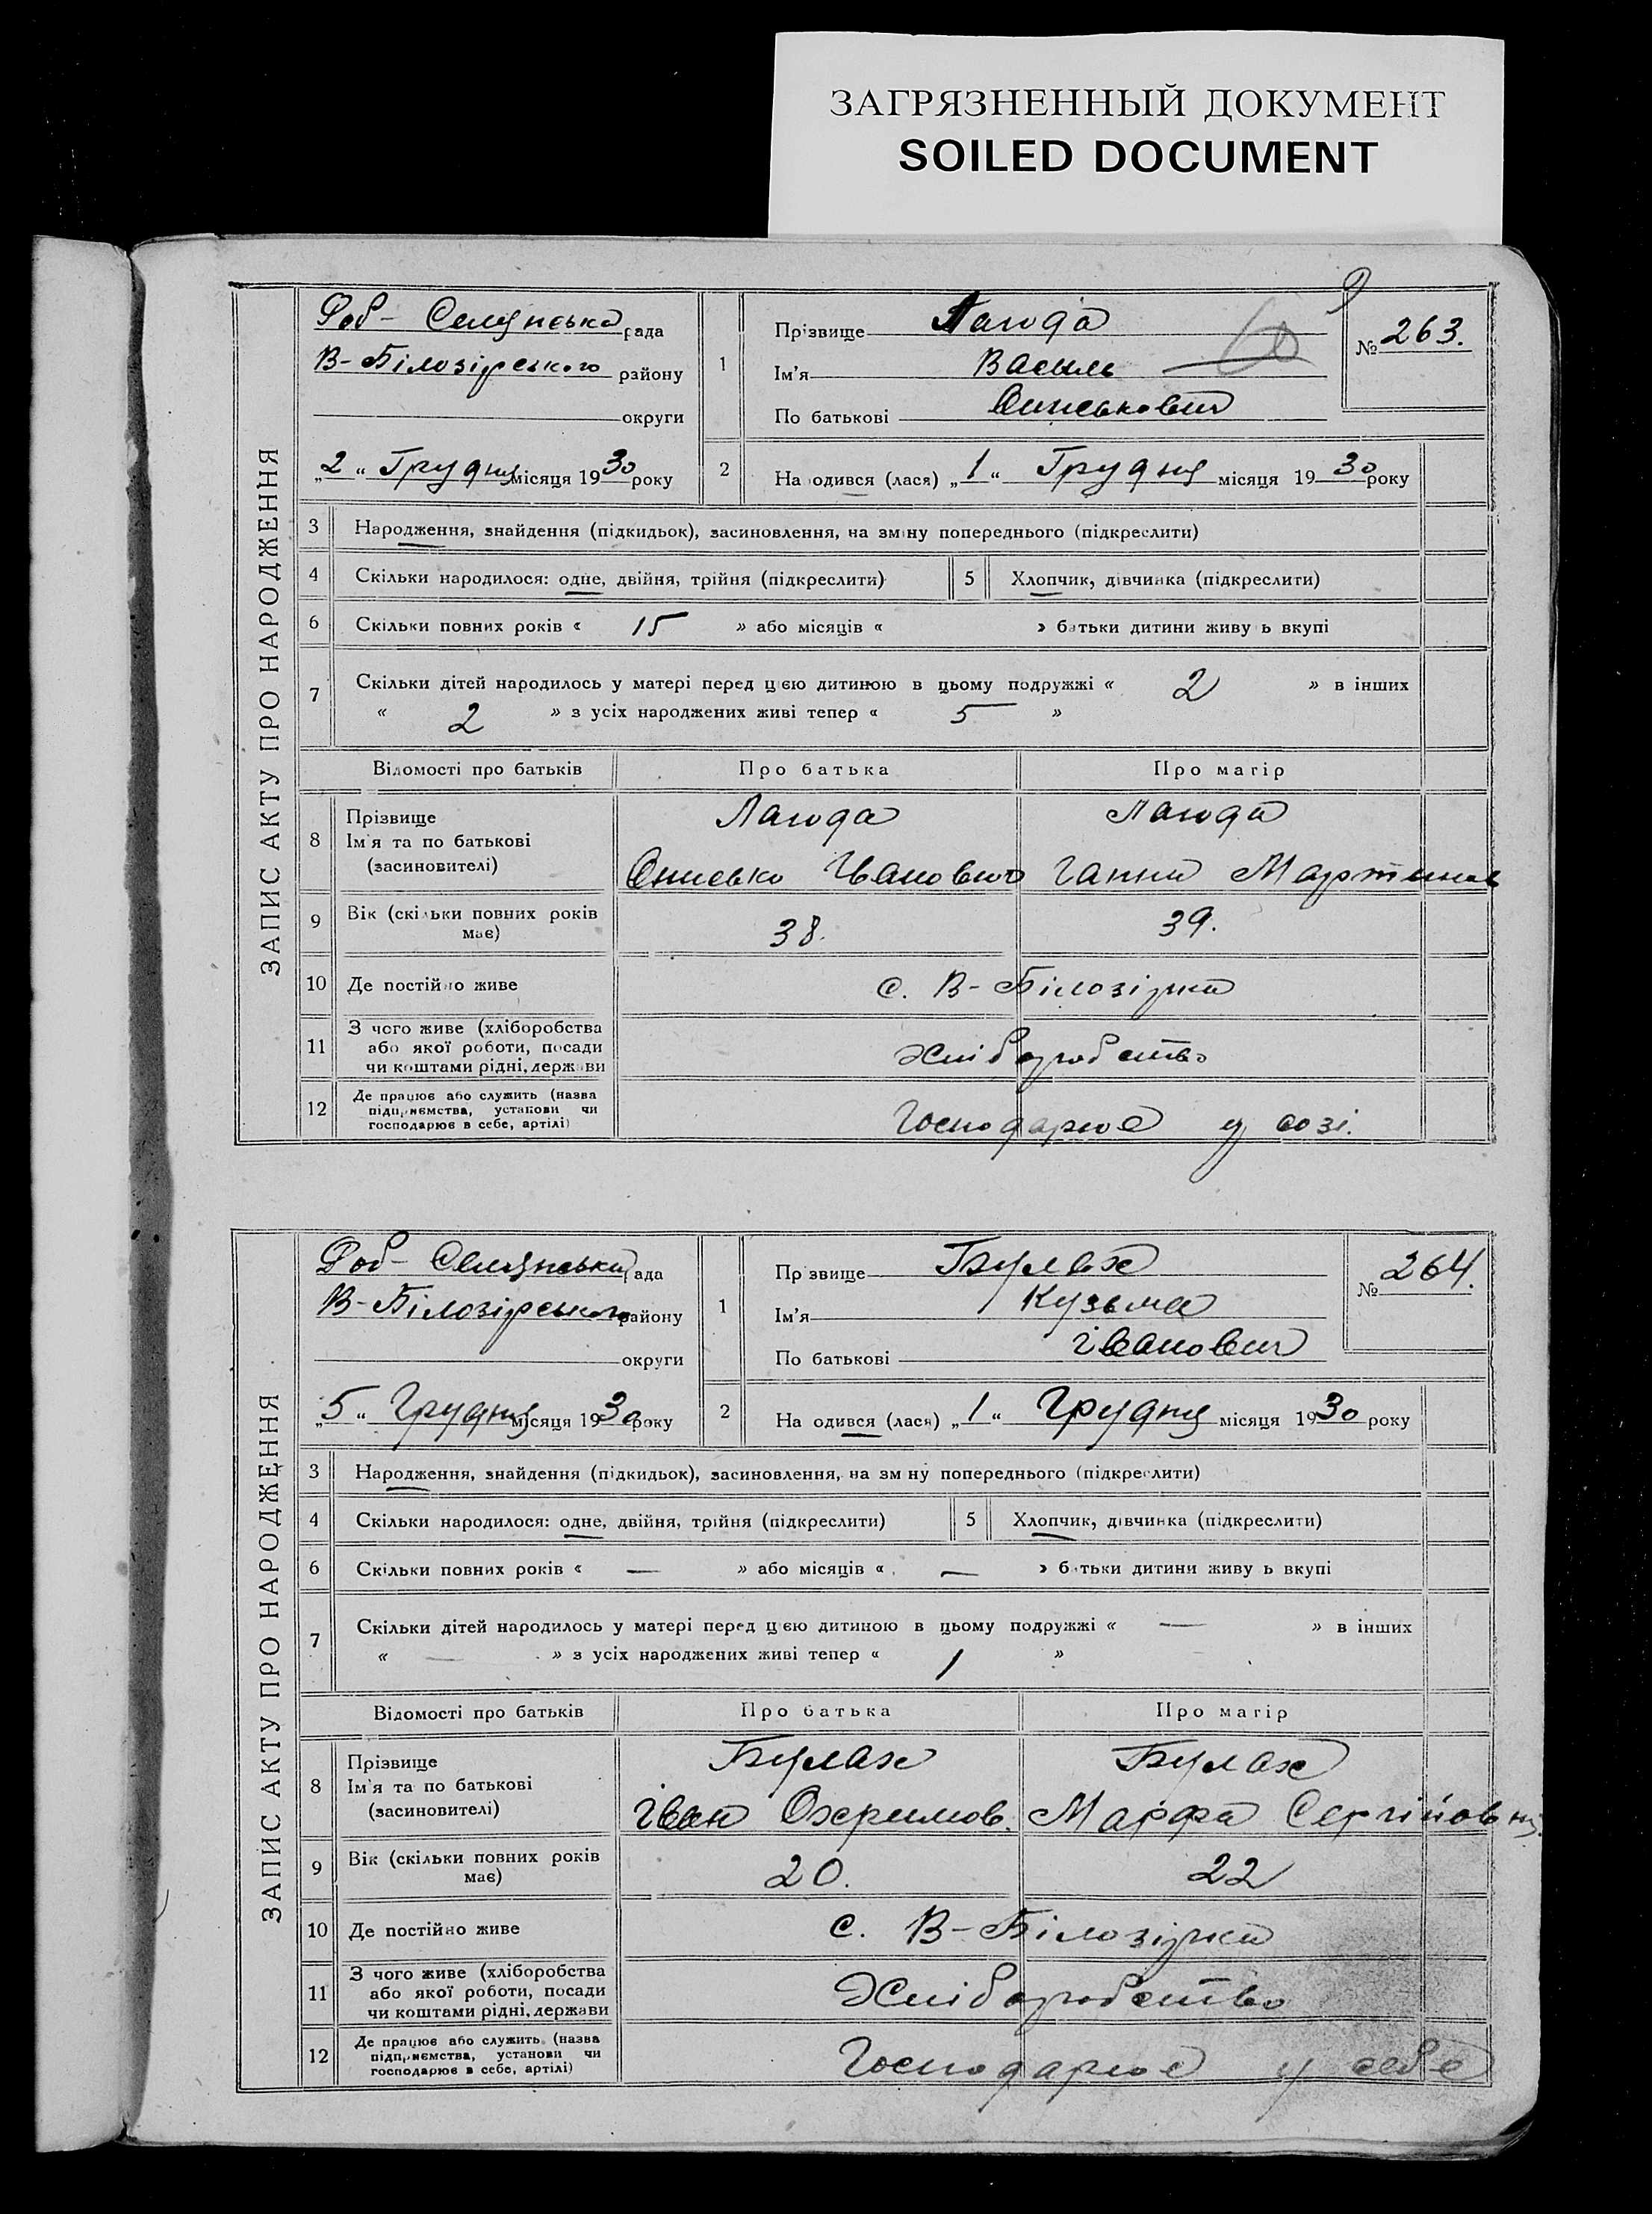 ЗАГРЯЗНЕННЫЙ ДОКУМЕНТ
SOILED DOCUMENT
ЗАПИС АКТУ ПРО НАРОДЖЕННЯ
Роб- Селянська рада
В-Білозірського району
округи
„2“ Грудня місяця 1930 року
1
Прізвище Лагода
Ім'я Василь
По батькові Ониськович
№ 263.
2
На одився (лася) „1“ Грудня місяця 1930 року
3 Народження, знайдення (підкидьок), засиновлення, на зміну попереднього (підкреслити)
4 Скільки народилося: одне, двійня, трійня (підкреслити)
5 Хлопчик, дівчинка (підкреслити)
6 Скільки повних років « 15 » або місяців « » батьки дитини живу ь вкупі
7 Скільки дітей народилось у матері перед цією дитиною в цьому подружжі « 2 » в інших
« 2 » з усіх народжених живі тепер « 5 »
Відомості про батьків Про батька Про матір
8 Прізвище
Ім'я та по батькові
(засиновителі)
Лагода Лагода
Онисько Іванович Ганна Мартинов
9 Вік (скільки повних років
має)
38. 39.
10 Де постійно живе с. В-Білозірка
11 З чого живе (хліборобства
або якої роботи, посади
чи коштами рідні, держави
Хліборобство
12 Де працює або служить (назва
підприємства, установи чи
господарює в себе, артілі)
Господарює у созі.
ЗАПИС АКТУ ПРО НАРОДЖЕННЯ
Роб- Селянська рада
В-Білозірського району
округи
„5“ Грудня місяця 1930 року
1
Пр звище Булах
Ім'я Кузьма
По батькові Іванович
№ 264.
2
На одився (лася) „1“ Грудня місяця 1930 року
3 Народження, знайдення (підкидьок), засиновлення, на зм ну попереднього (підкреслити)
4 Скільки народилося: одне, двійня, трійня (підкреслити)
5 Хлопчик, дівчинка (підкреслити)
6 Скільки повних років « — » або місяців « — » б тьки дитини живу ь вкупі
7 Скільки дітей народилось у матері перед цією дитиною в цьому подружжі « — » в інших
« — » з усіх народжених живі тепер « 1 »
Відомості про батьків Про батька Про матір
8 Прізвище
Ім'я та по батькові
(засиновителі)
Булах Булах
Іван Охримов. Марфа Сергійовня
9 Вік (скільки повних років
має)
20. 22
10 Де постійно живе с. В-Білозірка
11 З чого живе (хліборобства
або якої роботи, посади
чи коштами рідні, держави
Хліборобство
12 Де працює або служить (назва
підприємства, установи чи
господарює в себе, артілі)
Господарює у себе